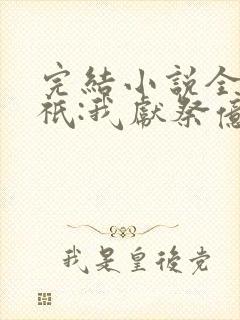 完結小説全
祇:我獻祭億
我是皇後党